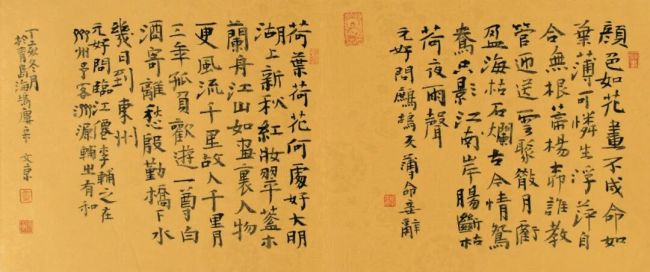 顏色如花畫不成命如
葉薄可憐生浮萍自
合無根蒂楊柳誰教
管迎送雲聚散月虧
盈海枯石爛古今情鴛
鴦只影江南岸腸斷枯
荷夜雨聲
元好問鷓鴣天薄命妾辭
荷葉荷花何處好大明
湖上新秋紅妝翠蓋木
蘭舟江山如畫裏人物
更風流千里故人千里月
三年孤負歡遊一尊白
酒寄離愁殷勤橋下水
幾日到東州
元好問臨江僊李輔之在
齊州予客濟源輔之有和
丁亥冬月
於青島海